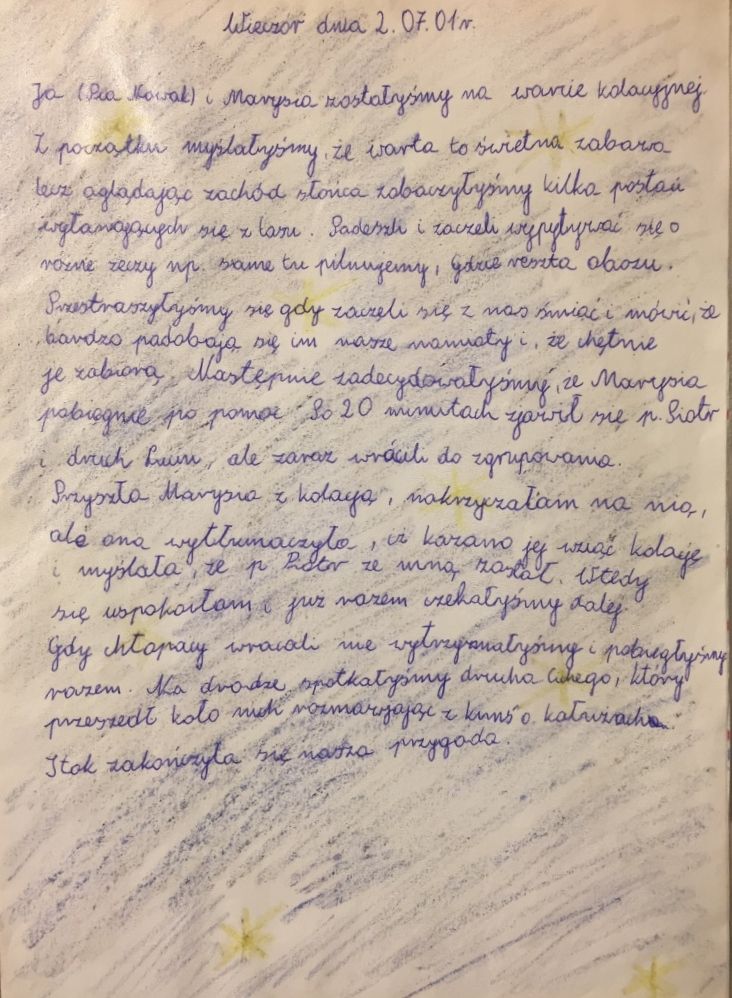 Wieczór dnia 2.07.01r.
Ja (Pia Nowak) i Marysia zostałyśmy na warcie kolacyjnej
Z początku myślałyśmy, że warta to świetna zabawa
lecz oglądając zachód słońca zobaczyłyśmy kilka postaci
wyłaniających się z lasu. Podeszli i zaczeli wypytywać się o
rożne rzeczy np. same tu pilnujemy, gdzie reszta obozu.
Przestraszyłyśmy się gdy zaczeli się z nas śmiać i mówić, że
bardzo podobają się im nasze namioty i, że chętnie
je zabiorą. Następnie zadecydowałyśmy, że Marysia
pobiegnie po pomoc. Po 20 minutach zjawił się p. Piotr
i druch, ale zaraz wrócili do zgrupowania.
Przyszła Marysia z kolacją, nakrzyczałam na nią,
ale ona wytłumaczyła, iż kazano jej wziąć kolację
i myślała, że p. Piotr ze mną został. Wtedy
się uspokoiłam i już razem czekałyśmy dalej.
Gdy chłopacy wracali nie wytrzymałyśmy i pobiegłyśmy
razem. Na drodze spotkałyśmy drucha, który
przeszedł koło nich rozmawiając z kimś o kałużach.
I tak zakończyła się nasza przygoda.